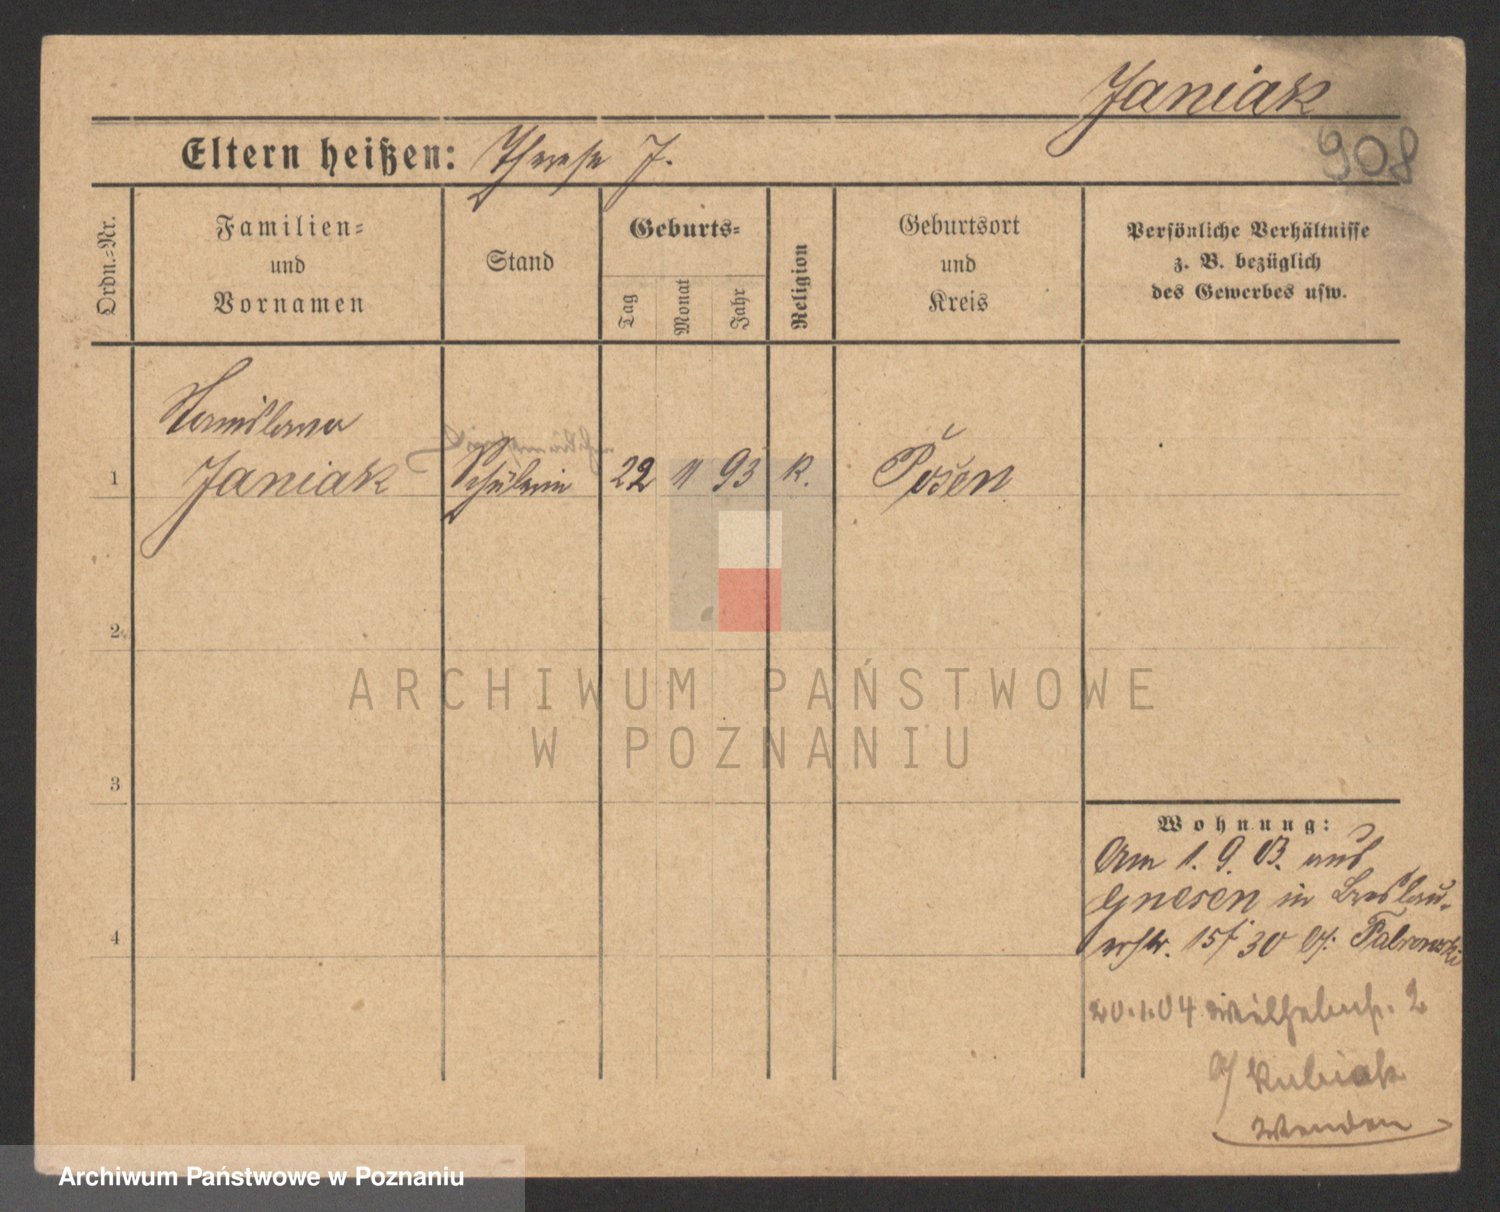 Janiak
908
Eltern heißen: Therese J.
Ordn.-Nr.
Familien-
und
Vornamen
Stand
Geburts-
Tag
Monat
Jahr
Religion
Geburtsort
und
Kreis
Persönliche Verhältnisse
z. B. bezüglich
des Gewerbes usw.
Stanislawa
1 Janiak Schülerin 22 11 93 k. Posen
2
3
4
ARCHIWUM PAŃSTWOWE
W POZNANIU
Wohnung:
Am 1. 9. 03. aus
Gnesen in Breslau-
erstr. 15/30
20.1.04 2
Kubiak
Wenden
Archiwum Państwowe w Poznaniu